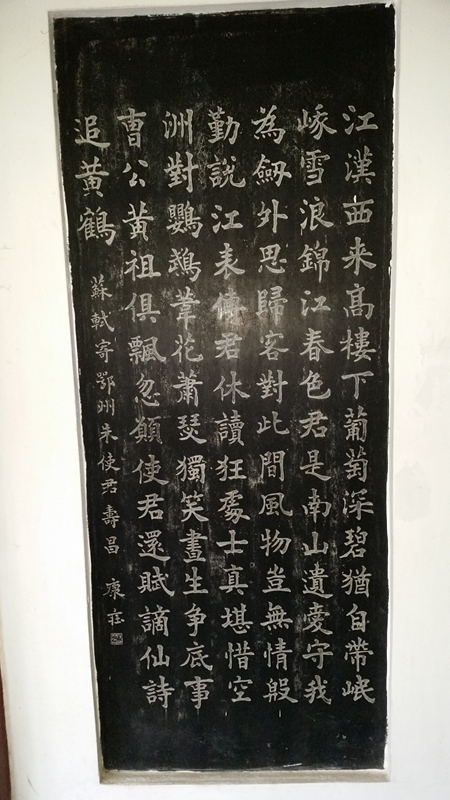 江漢西来高樓下葡萄深碧猶自帶岷
峨雪浪錦江春色君是南山遺愛守我
為劒外思歸客對此間風物豈無情殷
勤説江表傳君休讀狂處士真堪惜空
洲對鸚鵡葦花蕭瑟獨笑書生争底事
曹公黄祖俱飄忽願使君還賦謫仙詩
追黄鶴
蘇軾寄鄂州朱使君壽昌 康莊